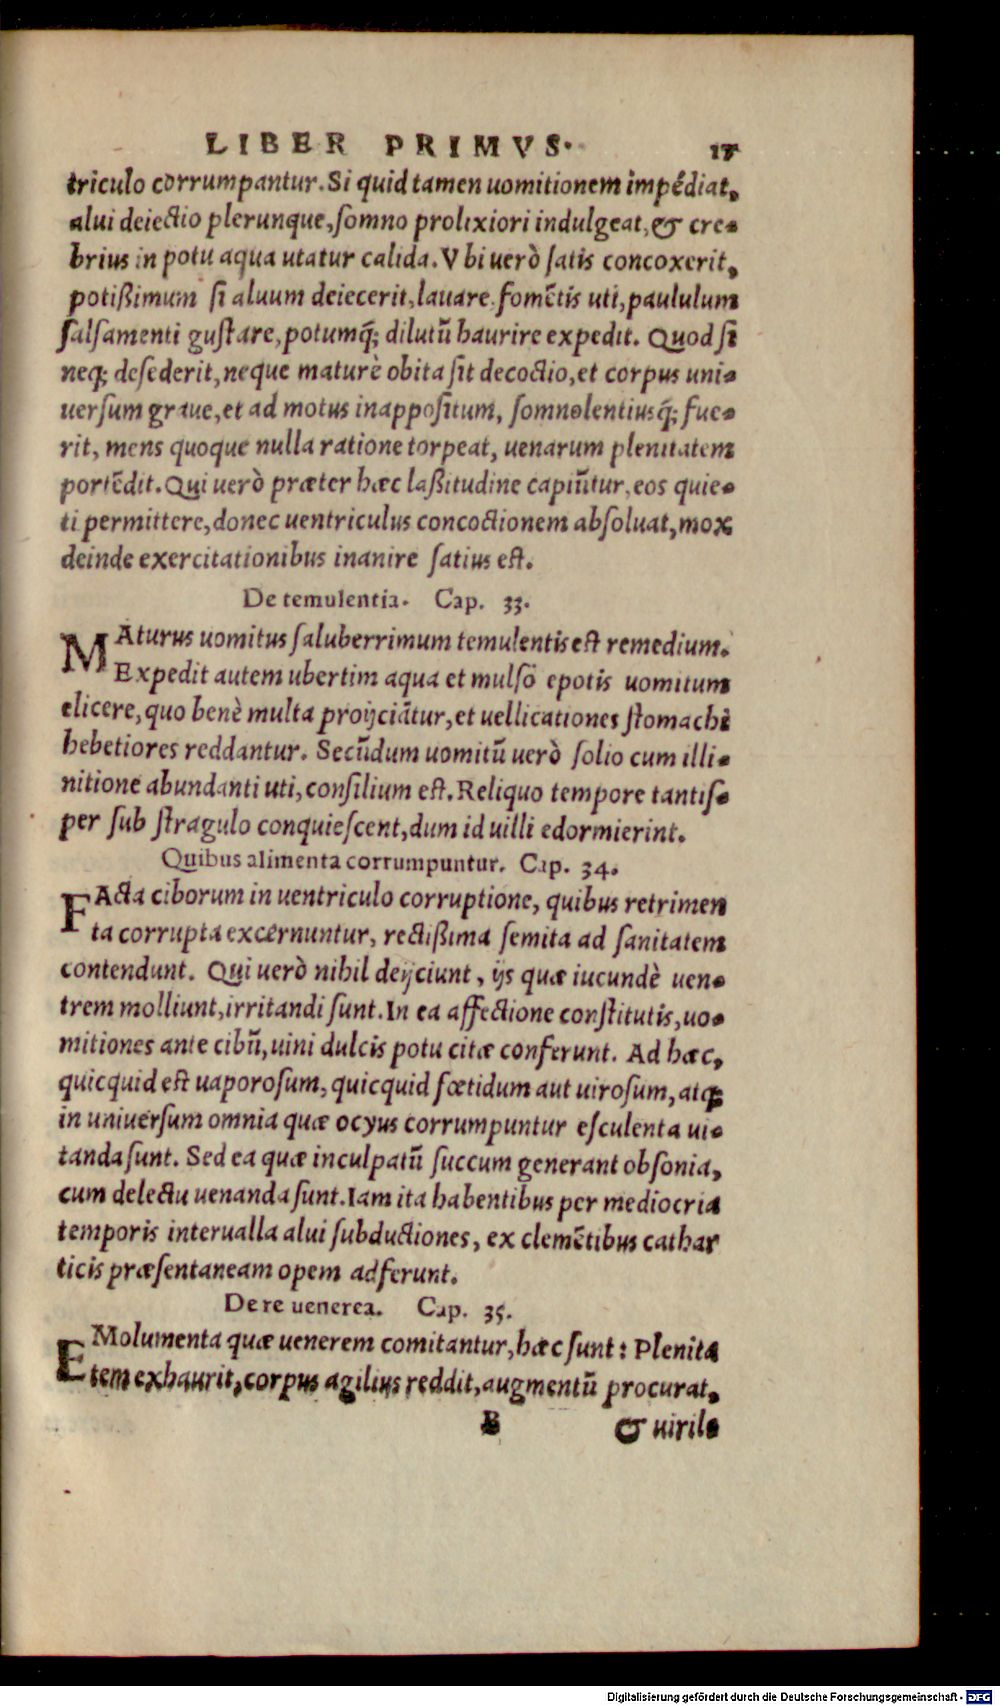 LIBER PRIMVS. 17
triculo corrumpantur. Si quid tamen uomitionem impédiat,
alui deiectio plerunque, ſomno prolixiori indulgeat, & cre-
brius in potu aqua utatur calida. Vbi uerò ſatis concoxerit,
potißimum ſi aluum deiecerit, lauare fomētis uti, paululum
ſalſamenti guſtare, potumq́; dilutū haurire expedit. Quod ſi
neq; deſederit, neque maturè obita ſit decoctio, et corpus uni-
uerſum graue, et ad motus inappoſitum, ſomnolentiusq́; fue-
rit, mens quoque nulla ratione torpeat, uenarum plenitatem
portēdit. Qui uerò præter hæc laßitudine capiūtur, eos quie-
ti permittere, donec uentriculus concoctionem abſoluat, mox
deinde exercitationibus inanire ſatius eſt.
De temulentia. Cap. 33.
MAturus uomitus ſaluberrimum temulentis eſt remedium.
Expedit autem ubertim aqua et mulſo epotis uomitum
elicere, quo benè multa proijciātur, et uellicationes ſtomachi
hebetiores reddantur. Secūdum uomitū uerò ſolio cum illi-
nitione abundanti uti, conſilium eſt. Reliquo tempore tantiſ-
per ſub ſtragulo conquieſcent, dum id uilli edormierint.
Quibus alimenta corrumpuntur. Cap. 34.
FActa ciborum in uentriculo corruptione, quibus retrimen
ta corrupta excernuntur, rectißima ſemita ad ſanitatem
contendunt. Qui uerò nihil deijciunt, ijs quæ iucundè uen-
trem molliunt, irritandi ſunt. In ea affectione conſtitutis, uo-
mitiones ante cibū, uini dulcis potu citæ conferunt. Ad hæc,
quicquid eſt uaporoſum, quicquid fœtidum aut uiroſum, atq;
in uniuerſum omnia quæ ocyus corrumpuntur eſculenta ui-
tanda ſunt. Sed ea quæ inculpatū ſuccum generant obſonia,
cum delectu uenanda ſunt. Iam ita habentibus per mediocria
temporis interualla alui ſubductiones, ex clemētibus cathar
ticis præſentaneam opem adferunt.
De re uenerea. Cap. 35.
EMolumenta quæ uenerem comitantur, hæc ſunt: Plenita
tem exhaurit, corpus agilius reddit, augmentū procurat,
B & uirile
Digitalisierung gefördert durch die Deutsche Forschungsgemeinschaft - DFG